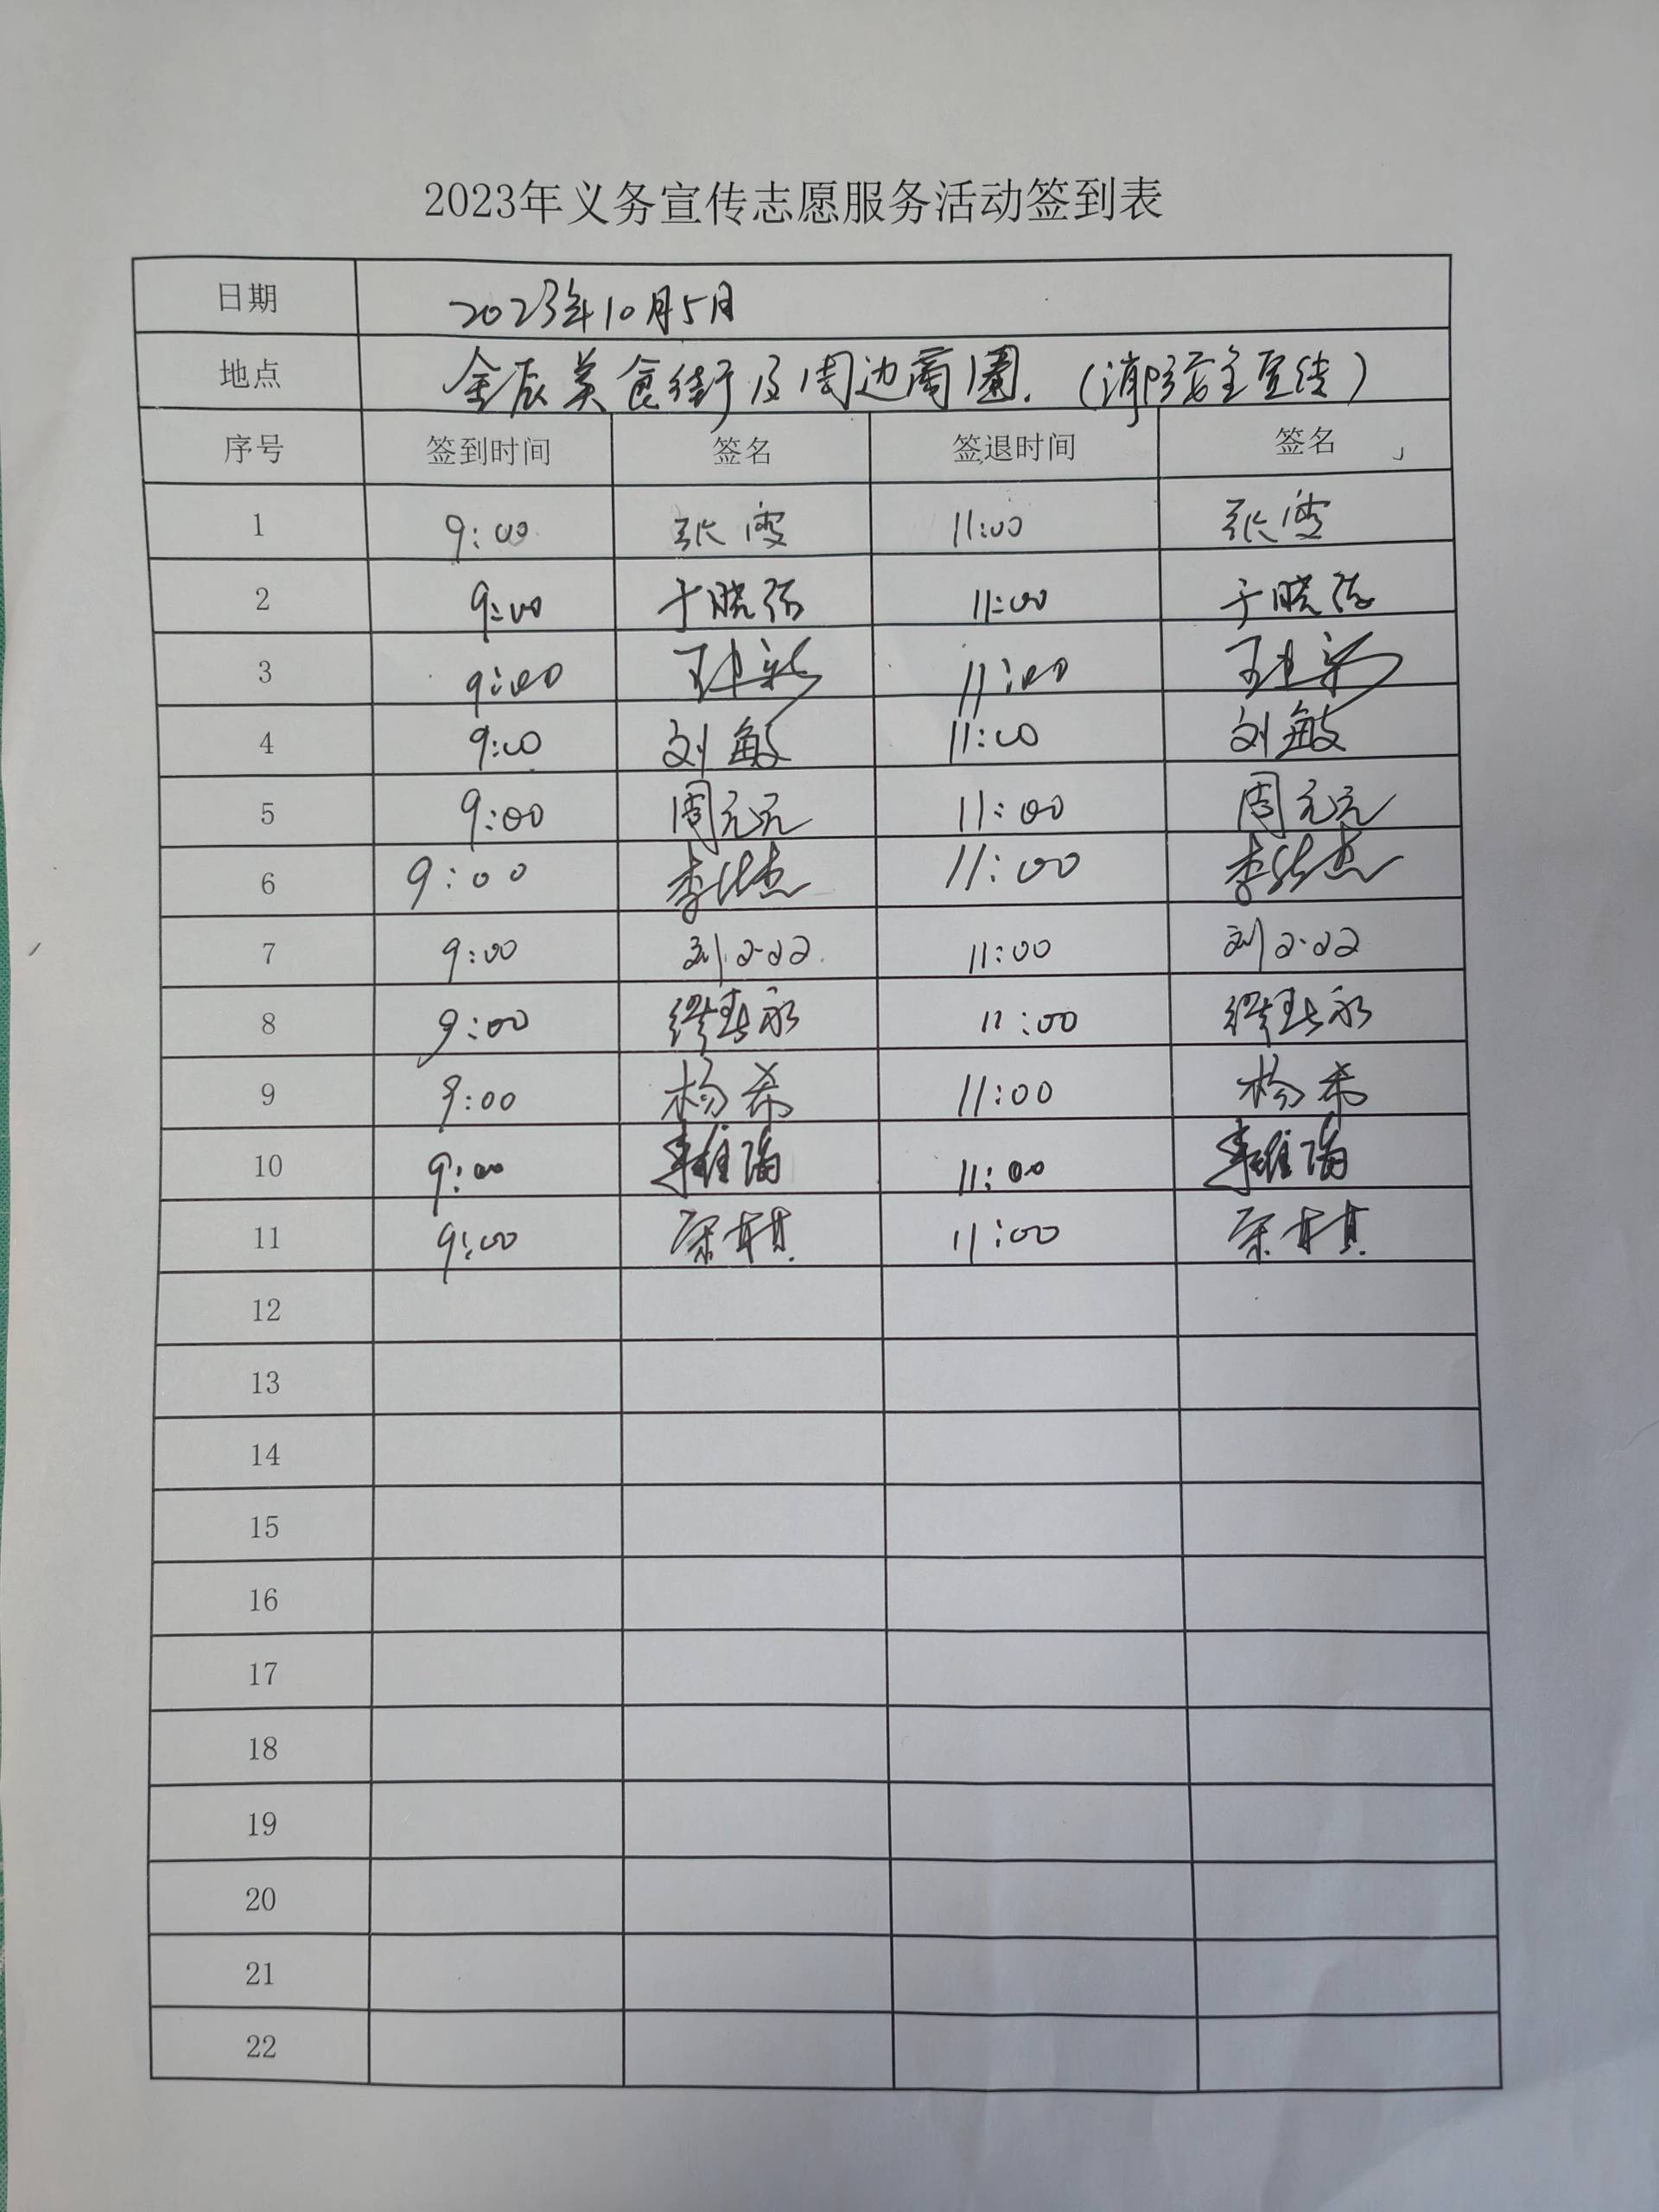 2023年义务宣传志愿服务活动签到表
日期 2023年10月5日
地点 金辰美食街及周边商圈.（消防安全宣传）
序号 签到时间 签名 签退时间 签名
1 9:00 张雯 11:00 张雯
2 9:00 于晓 11:00 于晓
3 9:00 王 11:00 王
4 9:00 刘敏 11:00 刘敏
5 9:00 周元元 11:00 周元元
6 9:00 李杰 11:00 李杰
7 9:00 刘 11:00 刘
8 9:00 缪永 11:00 缪永
9 9:00 杨希 11:00 杨希
10 9:00 李维 11:00 李维
11 9:00 11:00
12
13
14
15
16
17
18
19
20
21
22